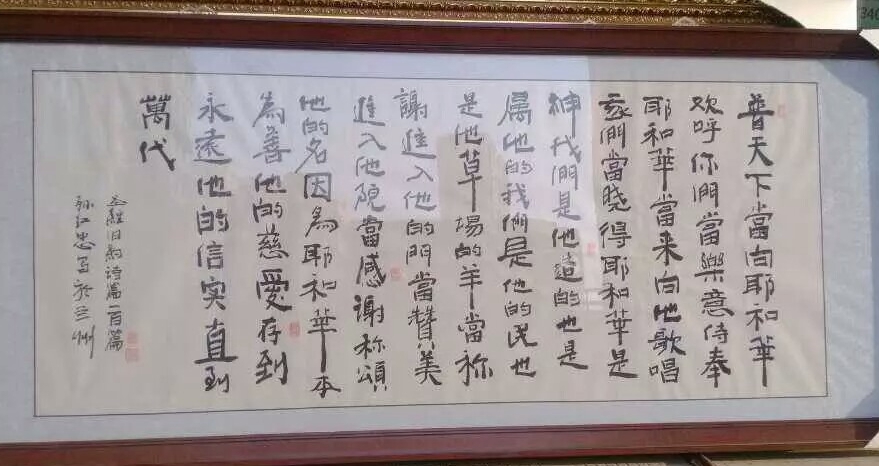 普天下當向耶和華
欢呼你們當樂意侍奉
耶和華當来向他歌唱
們當晓得耶和華是
神我們是他造的也是
属他的我們是他的民也
是他草場的羊當称
謝進入他的門當贊美
進入他院當感谢称頌
他的名因為耶和華本
為善他的慈愛存到
永遠他的信实直到
萬代
圣經旧約诗篇一百篇
孙江忠写於兰州
340